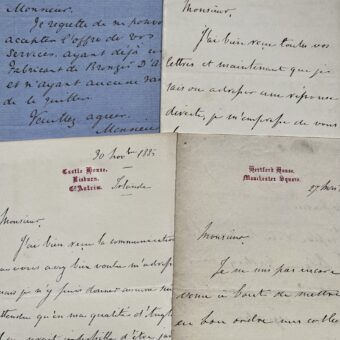 Monsieur.
Je regrette de ne pouvoir
accepter l'offre de vos
services, ayant déjà un
Fabricant de Bronzes d'A
et n'ayant aucune
de le quitter.
Veuillez agréer
Monsieur
Monsieur,
J'ai bien reçu toutes vos
lettres et maintenant que je
sais où adresser une réponse
directe, je m'empresse de vous
30 novbre 188
Castle House.
Lisburn.
Co Antrim.
Irlande
Monsieur,
J'ai bien reçu la communication
que vous avez bien voulu m'adresser
mais je n'y puis donner aucune
attendu qu'en ma qualité d'Angl
Hertford House,
Manchester Square.
27
Monsieur,
Je ne suis pas encore
venu à bout de mettre
en bon ordre mes